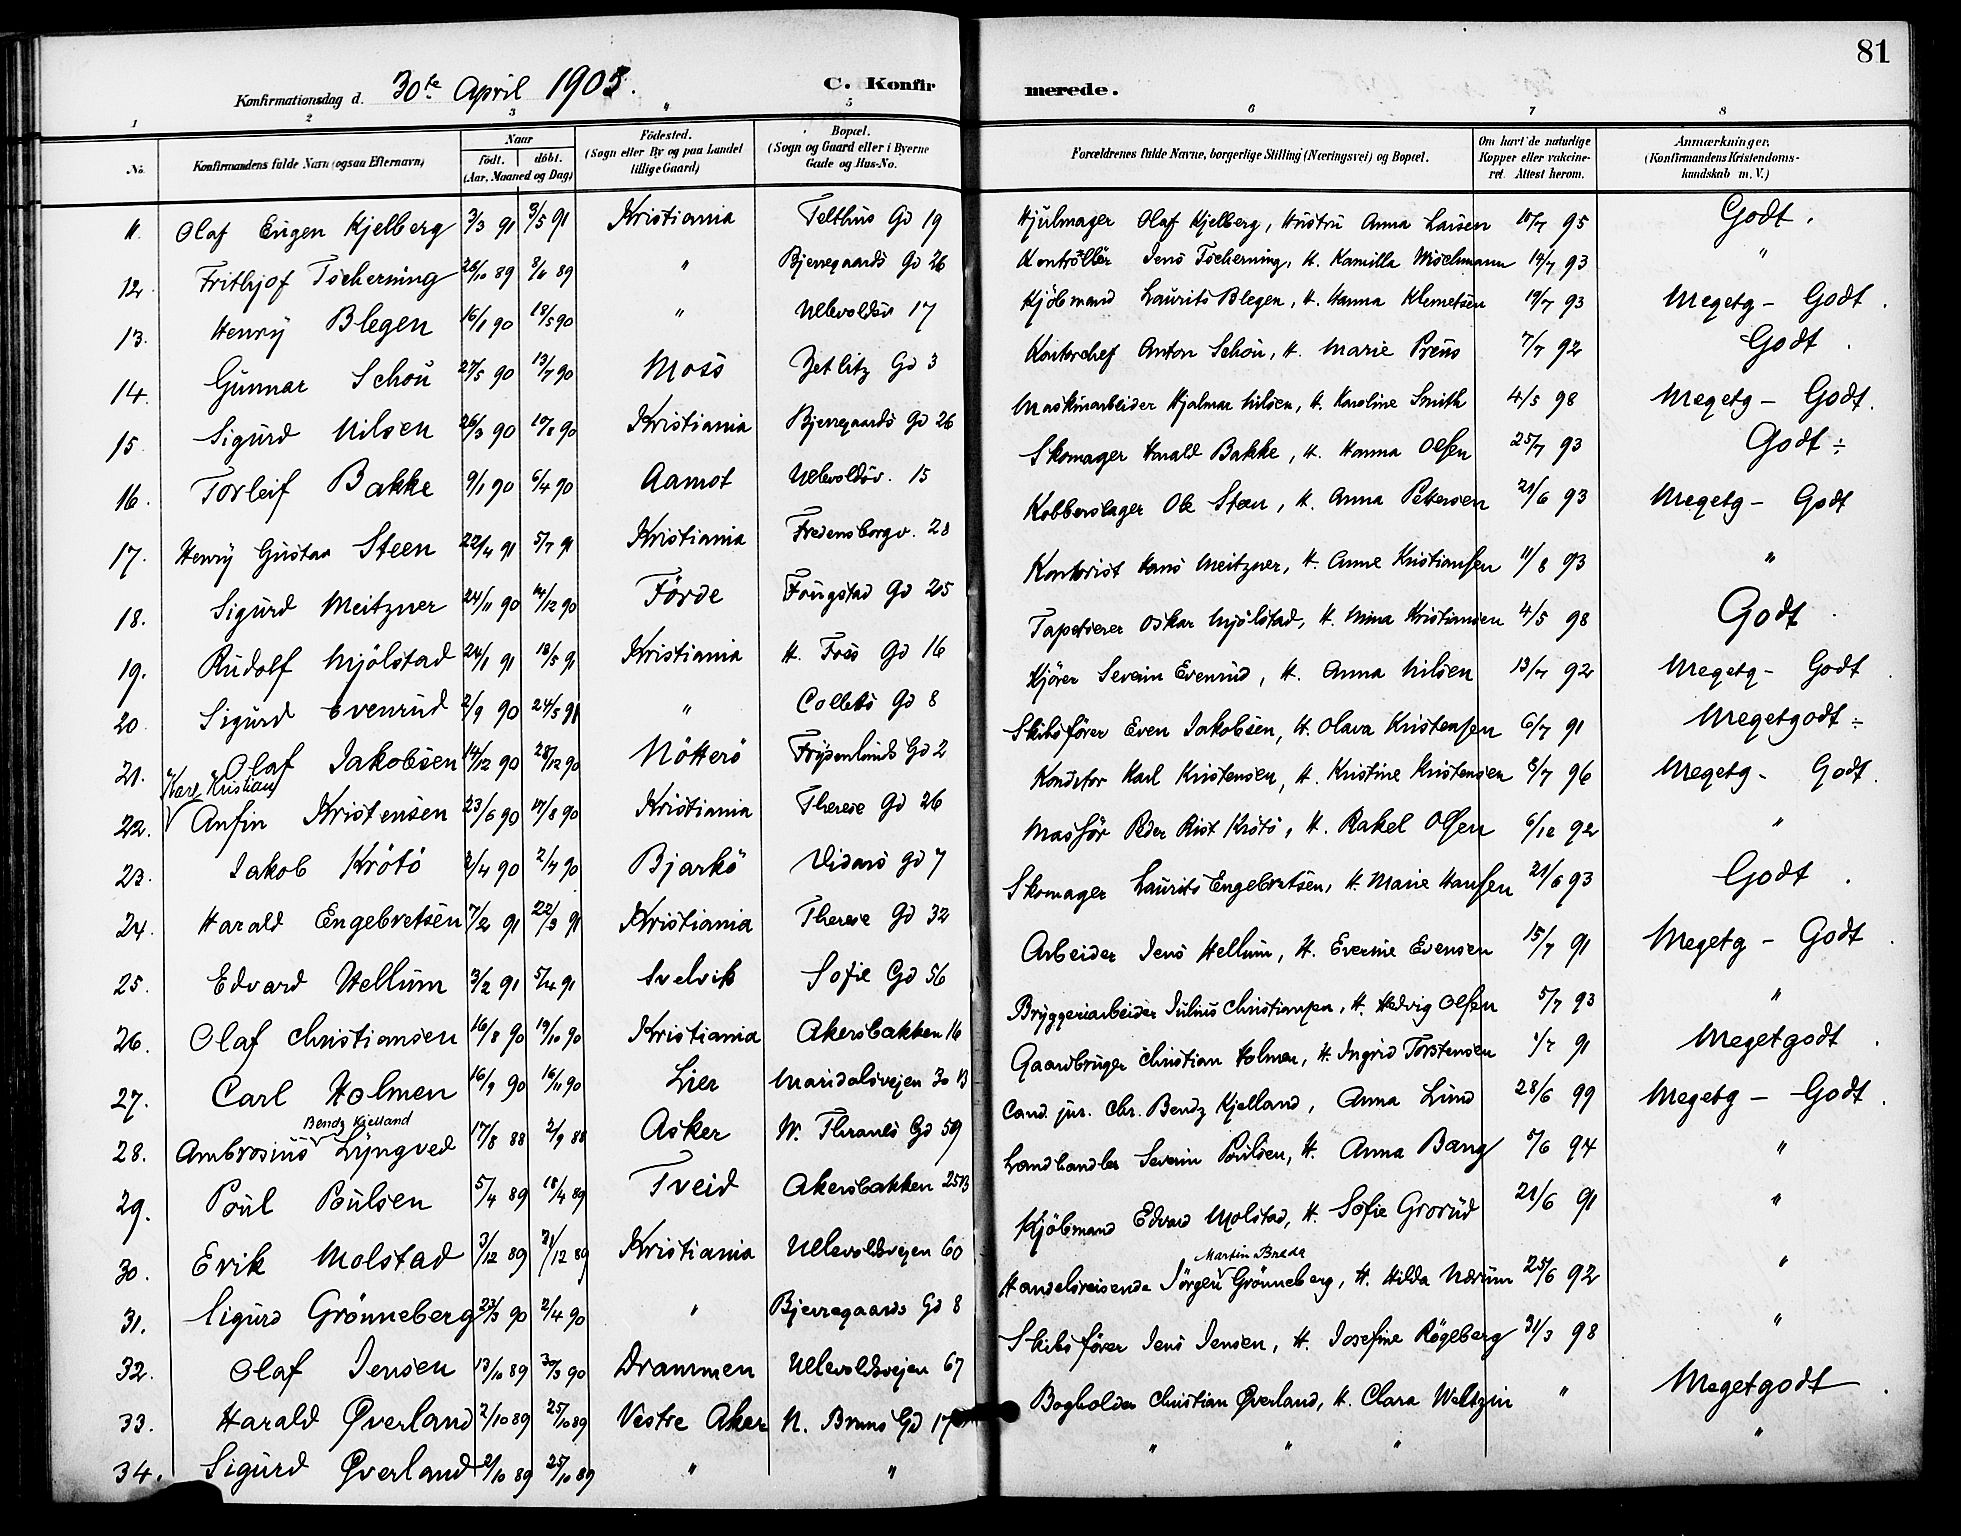 81
Konfirmationsdag d. 30te April 1905. C. Konfirmerede.
1 2 3 " 5 6 7 8
No. Konfirmandens fulde Navn (ogsaa Efternavn) Naar födt. döbt. (Aar, Maaned og Dag) Födested. (Sogn eller By og paa Landet tillige Gaard) Bopæl. (Sogn og Gaard eller i Byerne Gade og Hus-No. Forældrenes fulde Navne, borgerlige Stilling (Næringsvei) og Bopæl. Om havt de naturlige Kopper eller vaccineret. Attest herom. Anmærkninger. (Konfirmandens Kristendomskundskab m. V.)
11. Olaf Eugen Kjelberg 3/3 91 3/5 91 Kristiania Telthus Gd 19 Hjulmager Olaf Kjelberg, Hustru Anna Larsen 95 Godt.
12. Frithjof Tscherning 28/10 89 8/11 89 " Bjerregaards Gd 26 Kontrollör Jens Tscherning, H. Kamilla Wischmann 19/7 93 "
13. Henry Blegen 16/1 90 18/5 90 " Ullevoldsv 17 Kjöbmand Laurits Blegen, H. Hanna Klemetsen 19/7 93 Megetg - Godt.
14. Gunnar Schou 27/5 90 13/7 90 Moss Zetlitz Gd 3 Kontorchef Anton Schou, H. Marie Preus 7/7 92 Godt.
15. Sigurd Nilsen 26/3 90 90 Kristiania Bjerregaards Gd 26 Maskinarbeider Hjalmar Nilsen, H. Karoline Smith 4/5 98 Megetg - Godt.
16. Torleif Bakke 9/1 90 6/4 90 Aamot Ullevoldsv. 15 Skomager Harald Bakke, H. Hanna Olsen 25/7 93 Godt ÷
17. Henry Gustav Steen 22/4 91 5/7 91 Kristiania Fredensborgv. 28 Kobberslager Ole Steen, H. Anna Pettersen 21/6 93 Megetg - Godt
18. Sigurd Meitzner 24/11 90 14/12 90 Förde Fougstad Gd 25 Kontorist Hans Meitzner, H. Anne Kristiansen 11/8 93 "
19. Rudolf Mjölstad 24/1 91 18/5 91 Kristiania H. Foss Gd 16 Tapetserer Oskar Mjölstad, H. Mina Kristiansen 4/5 98 Godt.
20. Sigurd Evenrud 2/9 90 24/5 91 " Colletts Gd 8 Kjörer Severin Evenrud, H. Anna Nilsen 13/7 92 Megetg - Godt
21. Olaf Jakobsen 14/12 90 28/12 90 Nötterö Frydenlunds Gd 2 Skibsförer Even Jakobsen, H. Olava Kristensen 6/7 91 Megetgodt ÷
22. Karl Kristian Anfin Kristensen 23/6 90 17/8 90 Kristiania Therese Gd 26 Konditor Karl Kristensen, H. Kristine Kristensen 8/7 96 Megetg - Godt.
23. Jakob Krötö 2/4 90 2/7 90 Bjarkö Vidars Gd 7 Massör Peder Rist Krötö, H. Rakel Olsen 6/12 92 "
24. Harald Engebretsen 7/2 91 22/3 91 Kristiania Therese Gd 32 Skomager Laurits Engebretsen, H. Marie Hansen 21/6 93 Godt.
25. Edvard Hellum 3/2 91 5/4 91 Svelvik Sofie Gd 56 Arbeider Jens Hellum, H. Everine Evensen 15/7 91 Megetg - Godt.
26. Olaf Christiansen 16/8 90 19/10 90 Kristiania Akersbakken 16 Bryggeriarbeider Julius Christiansen, H. Hedvig Olsen 5/7 93 "
27. Carl Holmen 16/9 90 16/11 90 Lier Maridalsvejen 30 B Gaardbruger Christian Holmen, H. Ingrid Torstensen 1/7 91 Megetgodt.
28. Ambrosius Bendz Kjelland Lyngved 17/8 88 2/9 88 Asker W. Thranes Gd 59 Cand. jur. Chr. Bendz Kjelland, Anna Lund 28/6 99 Megetg - Godt.
29. Poul Poulsen 5/4 89 18/4 89 Tveid Akersbakken 25B Landhandler Severin Poulsen, H. Anna Bang 5/6 94 "
30. Erik Molstad 3/12 89 31/12 89 Kristiania Ullevoldsvejen 60 Kjöbmand Edvard Molstad, H. Sofie Grorud 21/6 91 "
31. Sigurd Grönneberg 23/3 90 2/4 90 " Bjerregaards Gd 8 Handelsreisende Jörgen Martin Brede Grönneberg, H. Hilda Nærum 25/6 92 "
32. Olaf Jensen 13/10 89 30/3 90 Drammen Ullevoldsvejen 67 Skibsförer Jens Jensen, H. Josefine Rögeberg 31/3 98 "
33. Harald Øverland 2/10 89 25/10 89 Vestre Aker N. Bruns Gd 17 Bogholder Christian Øverland, H. Clara Weltzin " Megetgodt.
34. Sigurd Øverland 2/10 89 25/10 89 " " " " " "